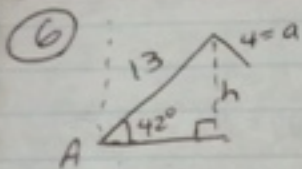 6
13
4=a
h
42°
A